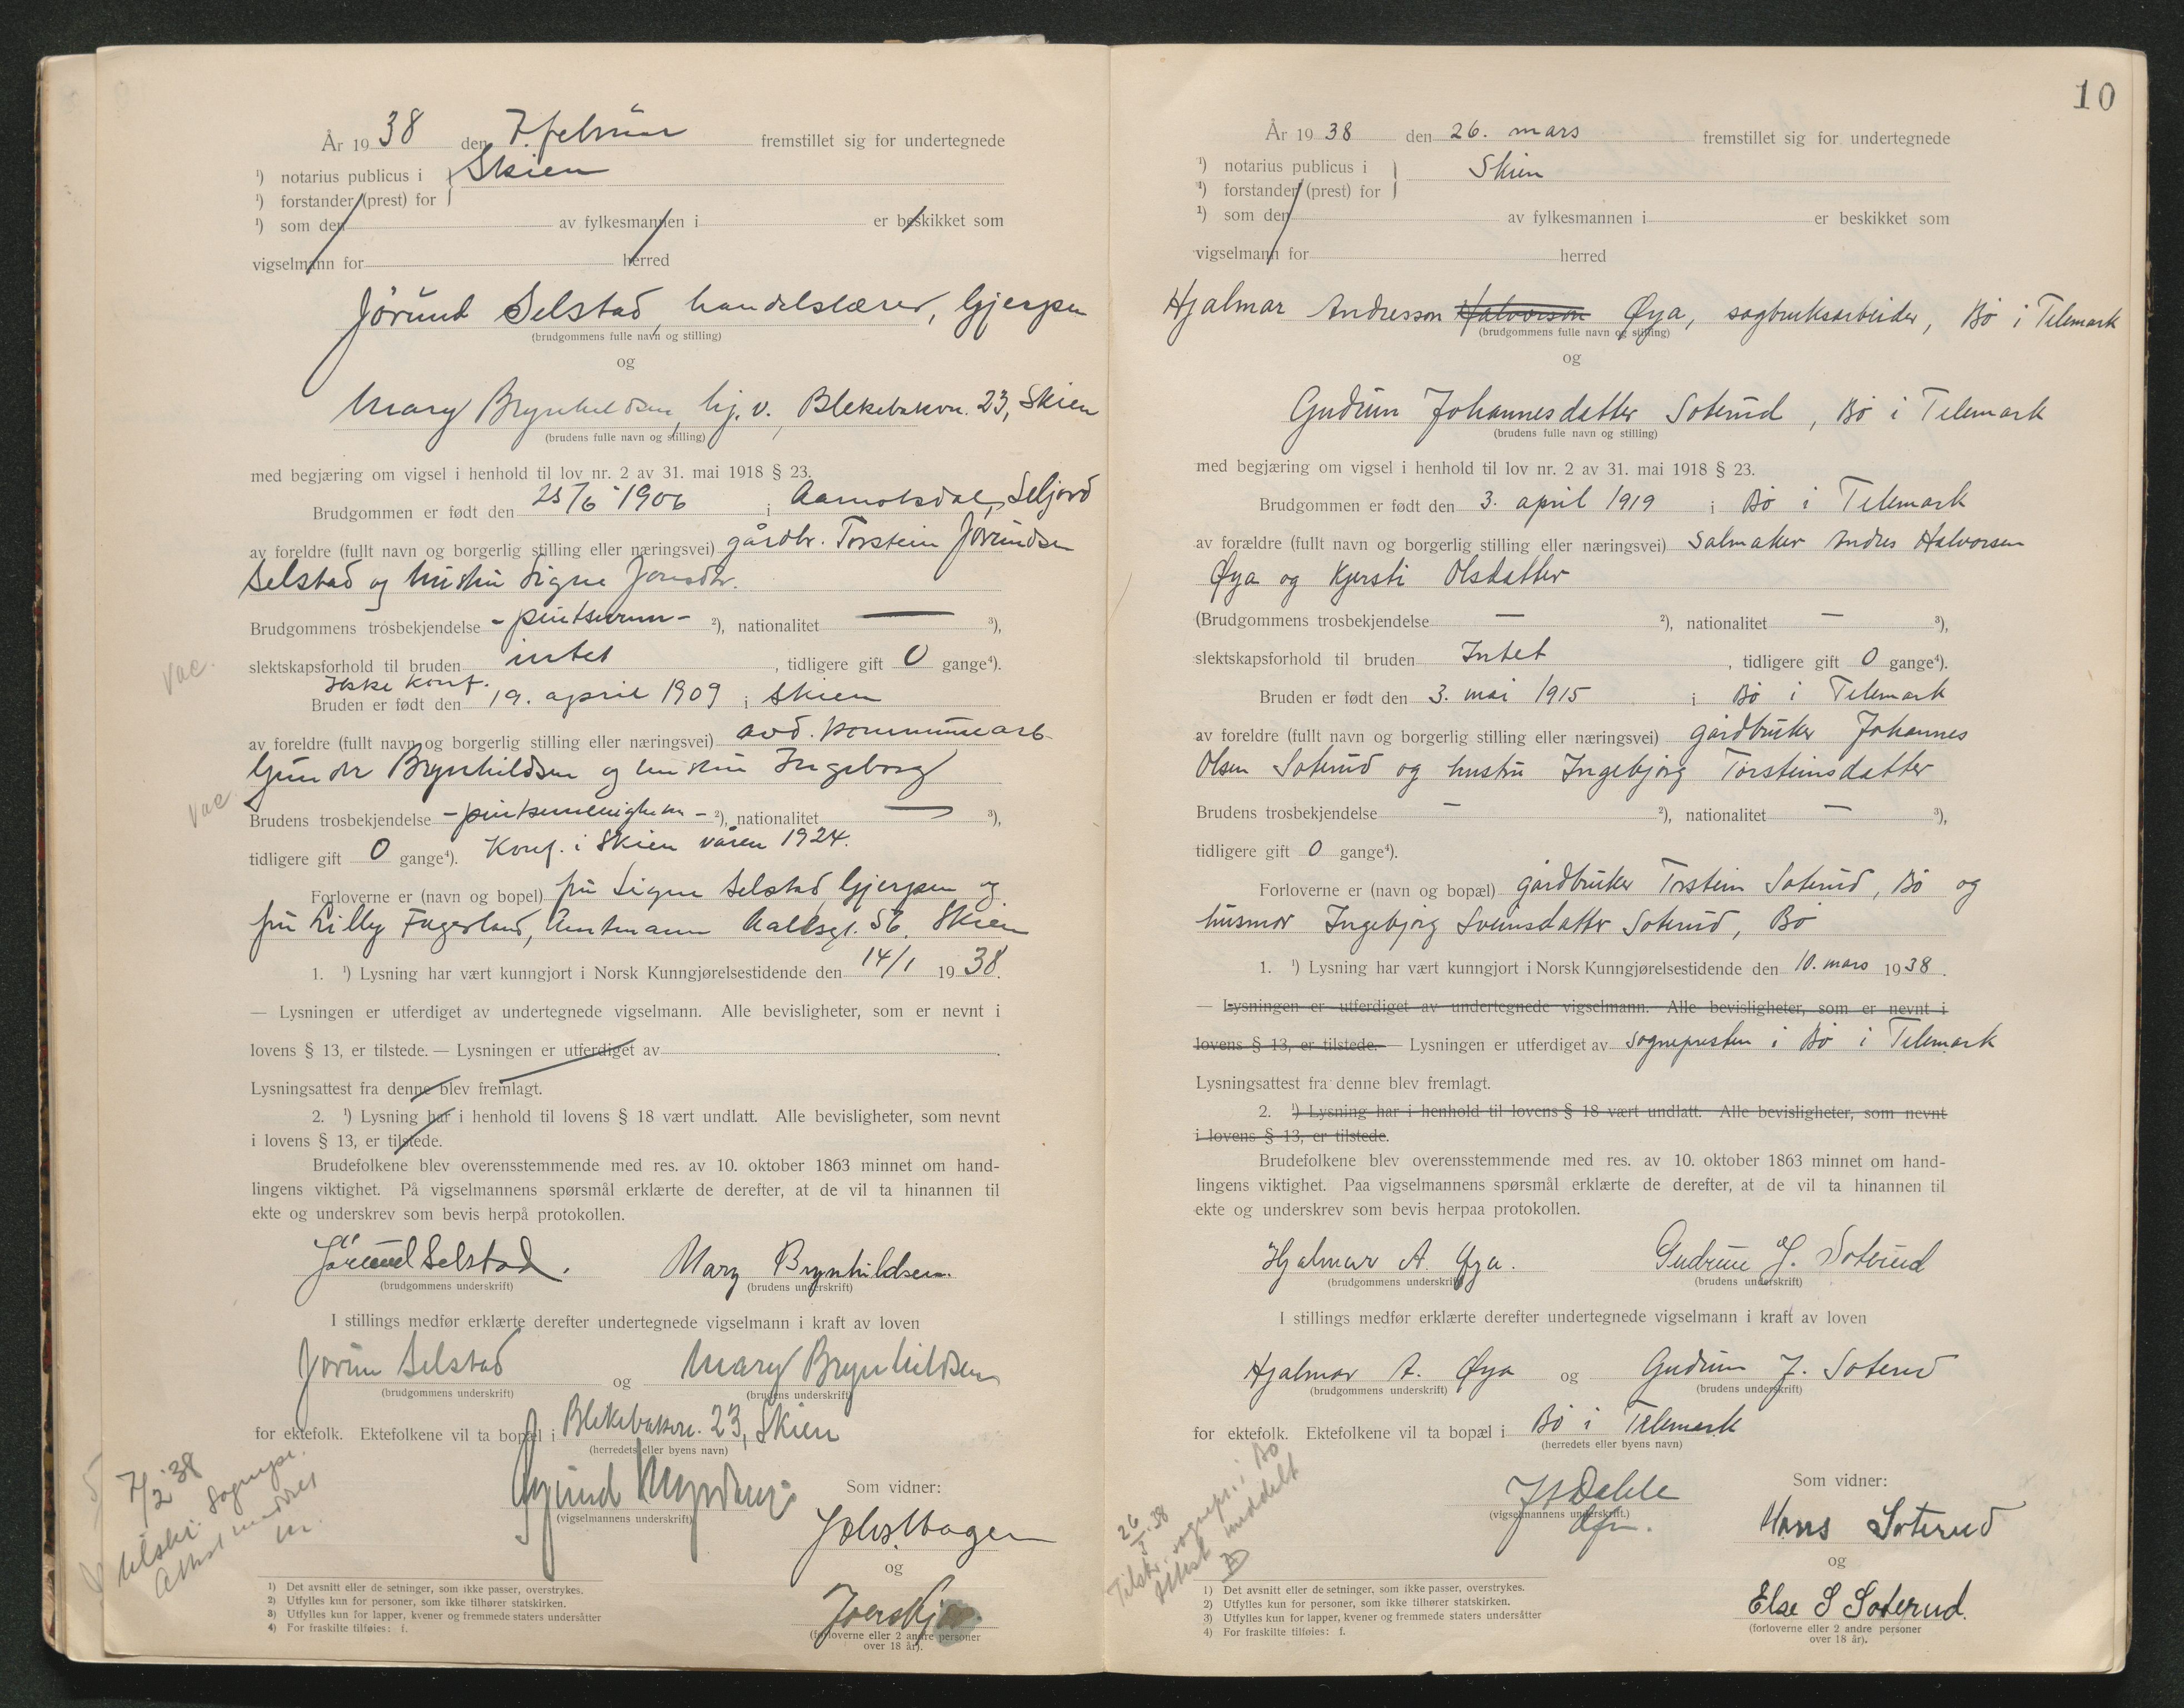 År 1938 den 7. februar fremstillet sig for undertegnede
¹) notarius publicus i
Skien
¹) forstander (prest) for
¹) som den av fylkesmannen i er beskikket som
vigselmann for herred
Jörund Selstad, handelslærer, Gjerpen
(brudgommens fulle navn og stilling)
og
Mary Brynhildsen, hj. v. Blekebakkvn. 23, Skien
(brudens fulle navn og stilling)
med begjæring om vigsel i henhold til lov nr. 2 av 31. mai 1918 § 23.
Brudgommen er født den 25/6 1906 i Aamotsdal, Seljord
av foreldre (fullt navn og borgerlig stilling eller næringsvei) gårdbr. Torstein Jørundsen
Selstad og hustru Signe Jonsdtr.
Brudgommens trosbekjendelse - pintsevenn - ²), nationalitet — ³),
vac.
slektskapsforhold til bruden intet, tidligere gift 0 gange⁴).
Ikke konf.
Bruden er født den 19. april 1909 i Skien
av foreldre (fullt navn og borgerlig stilling eller næringsvei) avd. kommunearb
Gunder Brynhildsen og hustru Ingeborg
vac.
Brudens trosbekjendelse - pintsemenigheten - ²), nationalitet — ³),
tidligere gift 0 gange⁴). Konf. i Skien våren 1924.
Forloverne er (navn og bopel) fru Signe Selstad, Gjerpen og
fru Lilly Fagerland, Amtmann Aallsgt. 56, Skien
1. ¹) Lysning har vært kunngjort i Norsk Kunngjørelsestidende den 14/1 1938.
— Lysningen er utferdiget av undertegnede vigselmann. Alle bevisligheter, som er nevnt i
lovens § 13, er tilstede. — Lysningen er utferdiget av .
Lysningsattest fra denne blev fremlagt.
2. ¹) Lysning har i henhold til lovens § 18 vært undlatt. Alle bevisligheter, som nevnt
i lovens § 13, er tilstede.
Brudefolkene blev overensstemmende med res. av 10. oktober 1863 minnet om hand-
lingens viktighet. På vigselmannens spørsmål erklærte de derefter, at de vil ta hinannen til
ekte og underskrev som bevis herpå protokollen.
Jörund Selstad. Mary Brynhildsen.
(brudgommens underskrift) (brudens underskrift)
I stillings medfør erklærte derefter undertegnede vigselmann i kraft av loven
Jørun Selstad og Mary Brynhildsen
(brudgommens underskrift) (brudens underskrift)
for ektefolk. Ektefolkene vil ta bopæl i Blekebakkvn. 23, Skien
(herredets eller byens navn)
7/2 38
Tilskr. sognepr.
Attest meddelt
Som vidner:
(vigselmannens underskrift)
og
(forloverne eller 2 andre personer
over 18 år).
1) Det avsnitt eller de setninger, som ikke passer, overstrykes.
2) Utfylles kun for personer, som ikke tilhører statskirken.
3) Utfylles kun for lapper, kvener og fremmede staters undersåtter
4) For fraskilte tilføies: f.
10
År 1938 den 26. mars fremstillet sig for undertegnede
¹) notarius publicus i
Skien
¹) forstander (prest) for
¹) som den av fylkesmannen i er beskikket som
vigselmann for herred
Hjalmar Andresson Halvorson Øya, sagbruksarbeider, Bø i Telemark
(brudgommens fulle navn og stilling)
og
Gudrun Johannesdatter Soterud, Bø i Telemark
(brudens fulle navn og stilling)
med begjæring om vigsel i henhold til lov nr. 2 av 31. mai 1918 § 23.
Brudgommen er født den 3. april 1919 i Bø i Telemark
av forældre (fullt navn og borgerlig stilling eller næringsvei) salmaker Andres Halvorsen
Øya og Kjersti Olsdatter
(Brudgommens trosbekjendelse — ²), nationalitet — ³),
slektskapsforhold til bruden Intet, tidligere gift 0 gange⁴).
Bruden er født den 3. mai 1915 i Bø i Telemark
av foreldre (fullt navn og borgerlig stilling eller næringsvei) gårdbruker Johannes
Olsen Soterud og hustru Ingebjørg Torsteinsdatter
Brudens trosbekjendelse — ²), nationalitet — ³),
tidligere gift 0 gange⁴).
Forloverne er (navn og bopæl) gårdbruker Torstein Soterud, Bø og
husmor Ingebjørg Sveinsdatter Soterud, Bø
1. ¹) Lysning har vært kunngjort i Norsk Kunngjørelsestidende den 10. mars 1938.
— Lysningen er utferdiget av undertegnede vigselmann. Alle bevisligheter, som er nevnt i
lovens § 13, er tilstede. — Lysningen er utferdiget av sognepresten i Bø i Telemark
Lysningsattest fra denne blev fremlagt.
2. ¹) Lysning har i henhold til lovens § 18 vært undlatt. Alle bevisligheter, som nevnt
i lovens § 13, er tilstede.
Brudefolkene blev overensstemmende med res. av 10. oktober 1863 minnet om hand-
lingens viktighet. Paa vigselmannens spørsmål erklærte de derefter, at de vil ta hinannen til
ekte og underskrev som bevis herpaa protokollen.
Hjalmar A. Øya. Gudrun J. Soterud
(brudgommens underskrift) (brudens underskrift)
I stillings medfør erklærte derefter undertegnede vigselmann i kraft av loven
Hjalmar A. Øya og Gudrun J. Soterud
(brudgommens underskrift) (brudens underskrift)
for ektefolk. Ektefolkene vil ta bopæl i Bø i Telemark
(herredets eller byens navn)
26/3 38
Tilskr. sognepr. i Bø
Attest meddelt
Som vidner:
Dahle
(vigselmannens underskrift.)
Hans Soterud
og
Else S Soterud.
(forloverne eller 2 andre personer
over 18 år).
1) Det avsnitt eller de setninger, som ikke passer, overstrykes.
2) Utfylles kun for personer, som ikke tilhører statskirken.
3) Utfylles kun for lapper, kvener og fremmede staters undersåtter
4) For fraskilte tilføies: f.